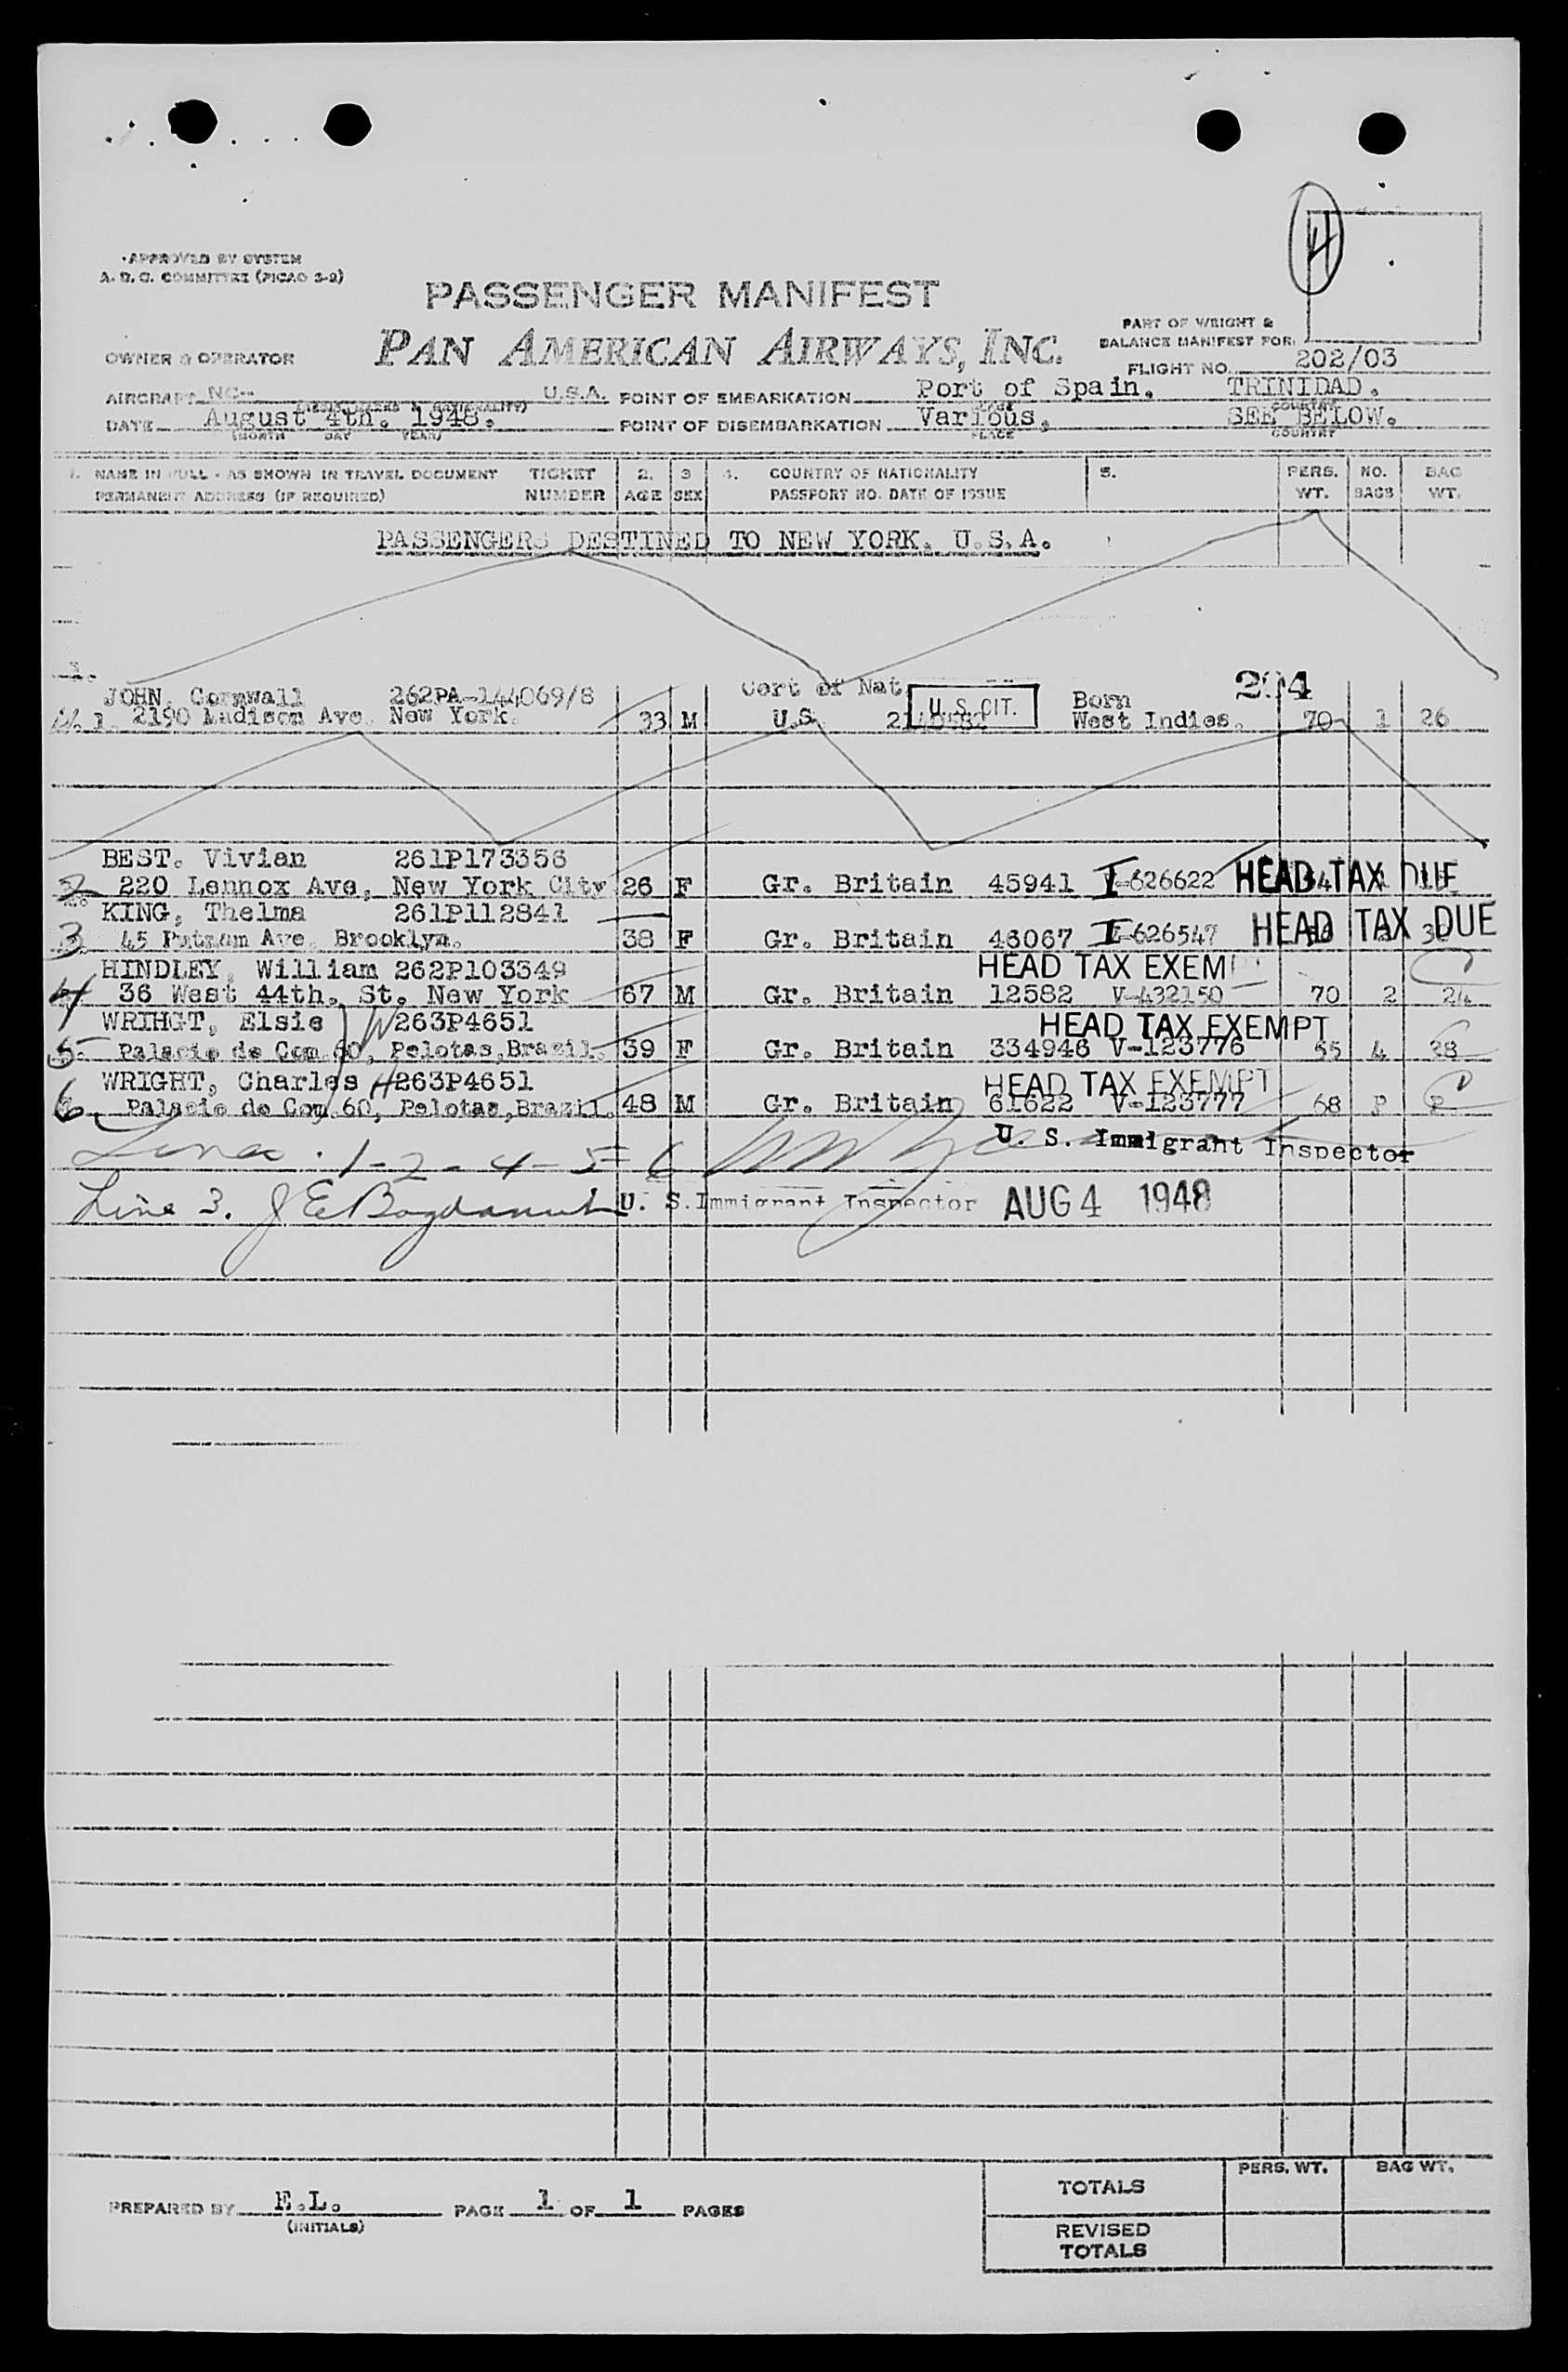 APPROVED BY SYSTEM
A.D.C. COMMITTEE (PICAO 3-2)
H
PASSENGER MANIFEST
PAN AMERICAN AIRWAYS, INC.
PART OF WEIGHT &
BALANCE MANIFEST FOR.
OWNER & OPERATOR
FLIGHT NO. 202/03
AIRCRAFT NC- U.S.A. POINT OF EMBARKATION Port of Spain, TRINIDAD.
DATE August 4th. 1948. POINT OF DISEMBARKATION Various, SEE BELOW.
(MONTH DAY YEAR) PLACE COUNTRY
1. NAME IN FULL - AS SHOWN IN TRAVEL DOCUMENT TICKET 2. 3 4. COUNTRY OF NATIONALITY 5. PERS. NO. BAG
PERMANENT ADDRESS (IF REQUIRED) NUMBER AGE SEX PASSPORT NO. DATE OF ISSUE WT. BAGS WT.
PASSENGERS DESTINED TO NEW YORK. U.S.A.
JOHN, Cornwall 262PA-144069/8 Cert of Nat. U.S. CIT. Born 294
1. 2190 Madison Ave. New York. 33 M U.S. West Indies. 70 1 26
BEST. Vivian 261P173356
2 220 Lennox Ave, New York City 26 F Gr. Britain 45941 I-626622 HEAD TAX DUE
KING, Thelma 261P112841
3 45 Putnam Ave. Brooklyn. 38 F Gr. Britain 46067 I-626547 HEAD TAX DUE
HINDLEY, William 262P103349 HEAD TAX EXEM
4 36 West 44th. St. New York 67 M Gr. Britain 12582 V-432150 70 2 24
WRIHGT, Elsie W 263P4651 HEAD TAX EXEMPT
5. Palacio de Com.60, Pelotas,Brazil. 39 F Gr. Britain 334946 V-123776 55 4 28
WRIGHT, Charles H 263P4651 HEAD TAX EXEMPT
6. Palacio de Com.60, Pelotas,Brazil. 48 M Gr. Britain 61622 V-123777 68 P P
U. S. Immigrant Inspector
Lines 1-2-4-5-6
Line 3. U. S. Immigrant Inspector AUG 4 1948
PERS. WT. BAG WT.
TOTALS
PREPARED BY E.L. PAGE 1 OF 1 PAGES
(INITIALS)
REVISED
TOTALS